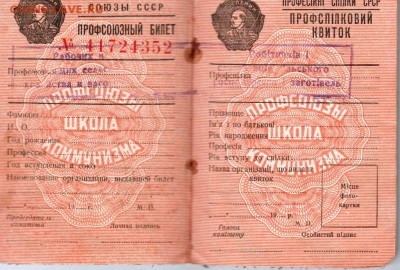 СОЮЗЫ СССР
ПРОФСОЮЗНЫЙ БИЛЕТ
№ 41724352
Рабочих
Профсоюз
Фамилия
Год рождения
Профессия
Год вступления в союз
Наименование организации, выдавшей билет
19 г.
М. П.
Председатель комитета
Личная подпись
ПРОФСОЮЗЫ
ШКОЛА
КОММУНИЗМА
ПРОФЕСІЙНІ СПІЛКИ СРСР
ПРОФСПІЛКОВИЙ
КВИТОК
Робітників і
заготівель
Профспілка
Прізвище
Ім'я і по батькові
Рік народження
Професія
Рік вступу до спілки
Назва організації, що видала
квиток
Місце
фото-
картки
19 р.
М. П.
Голова
комітету
Особистий підпис
ПРОФСОЮЗЫ
ШКОЛА
КОММУНИЗМА